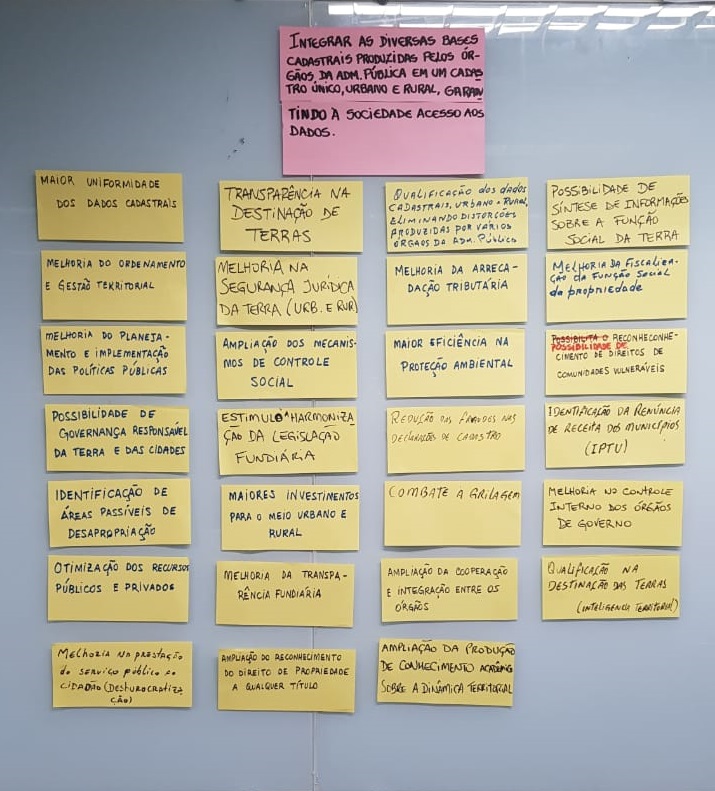 INTEGRAR AS DIVERSAS BASES
CADASTRAIS PRODUZIDAS PELOS ÓR-
GÃOS DA ADM. PÚBLICA EM UM CADAS
TRO ÚNICO, URBANO E RURAL, GARAN
TINDO À SOCIEDADE ACESSO AOS
DADOS.
MAIOR UNIFORMIDADE
DOS DADOS CADASTRAIS
TRANSPARÊNCIA NA
DESTINAÇÃO DE
TERRAS
QUALIFICAÇÃO DOS DADOS
CADASTRAIS, URBANO E RURAL,
ELIMINANDO DISTORÇÕES
PRODUZIDAS POR VÁRIOS
ÓRGÃOS DA ADM. PÚBLICA
POSSIBILIDADE DE
SÍNTESE DE INFORMAÇÕES
SOBRE A FUNÇÃO
SOCIAL DA TERRA
MELHORIA DO ORDENAMENTO
E GESTÃO TERRITORIAL
MELHORIA NA
SEGURANÇA JURÍDICA
DA TERRA (URB. E RUR)
MELHORIA DA ARRECA-
DAÇÃO TRIBUTÁRIA
MELHORIA DA FISCALIZA-
ÇÃO DA FUNÇÃO SOCIAL
da propriedade
MELHORIA DO PLANEJA-
MENTO E IMPLEMENTAÇÃO
DAS POLÍTICAS PÚBLICAS
AMPLIAÇÃO DOS MECANIS-
MOS DE CONTROLE
SOCIAL
MAIOR EFICIÊNCIA NA
PROTEÇÃO AMBIENTAL
POSSIBILITA O RECONHECONHE-
POSSIBILIDADE DE
CIMENTO DE DIREITOS DE
COMUNIDADES VULNERÁVEIS
POSSIBILIDADE DE
GOVERNANÇA RESPONSÁVEL
DA TERRA E DAS CIDADES
ESTIMULO A HARMONIZA
ÇÃO DA LEGISLAÇÃO
FUNDIÁRIA
REDUÇÃO DAS FRAUDES NAS
DECLARAÇÕES DE CADASTRO
IDENTIFICAÇÃO DA RENÚNCIA
DE RECEITA DOS MUNICÍPIOS
(IPTU)
IDENTIFICAÇÃO DE
ÁREAS PASSÍVEIS DE
DESAPROPRIAÇÃO
MAIORES INVESTIMENTOS
PARA O MEIO URBANO E
RURAL
COMBATE A GRILAGEM
MELHORIA NO CONTROLE
INTERNO DOS ÓRGÃOS
DE GOVERNO
OTIMIZAÇÃO DOS RECURSOS
PÚBLICOS E PRIVADOS
MELHORIA DA TRANSPA-
RÊNCIA FUNDIÁRIA
AMPLIAÇÃO DA COOPERAÇÃO
E INTEGRAÇÃO ENTRE OS
ÓRGÃOS
QUALIFICAÇÃO NA
DESTINAÇÃO DAS TERRAS
(INTELIGENCIA TERRITORIAL)
Melhoria na prestação
do serviço público ao
cidadão (Desburocratiza
ção)
AMPLIAÇÃO DO RECONHECIMENTO
DO DIREITO DE PROPRIEDADE
A QUALQUER TÍTULO
AMPLIAÇÃO DA PRODUÇÃO
DE CONHECIMENTO ACADÊMICO
SOBRE A DINÂMICA TERRITORIAL